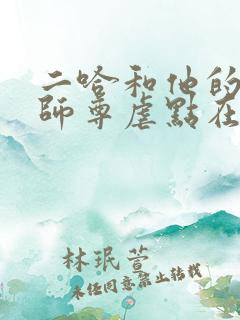 二哈和他的
師尊虐點在
林珉萱
未任同意禁止转载